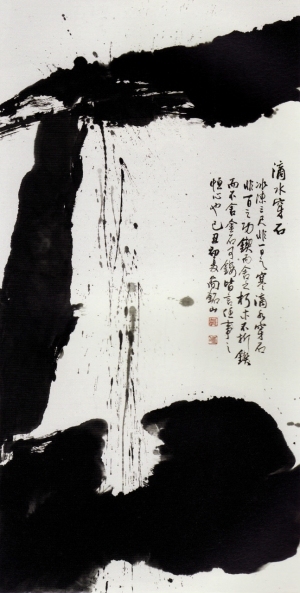 滴水穿石
冰凍三尺非一日之寒滴水穿石
非一日之功鍥而舍之朽木不折鍥
而不舍金石可鏤皆言恆事之
恒心也己丑初夏尚銘山